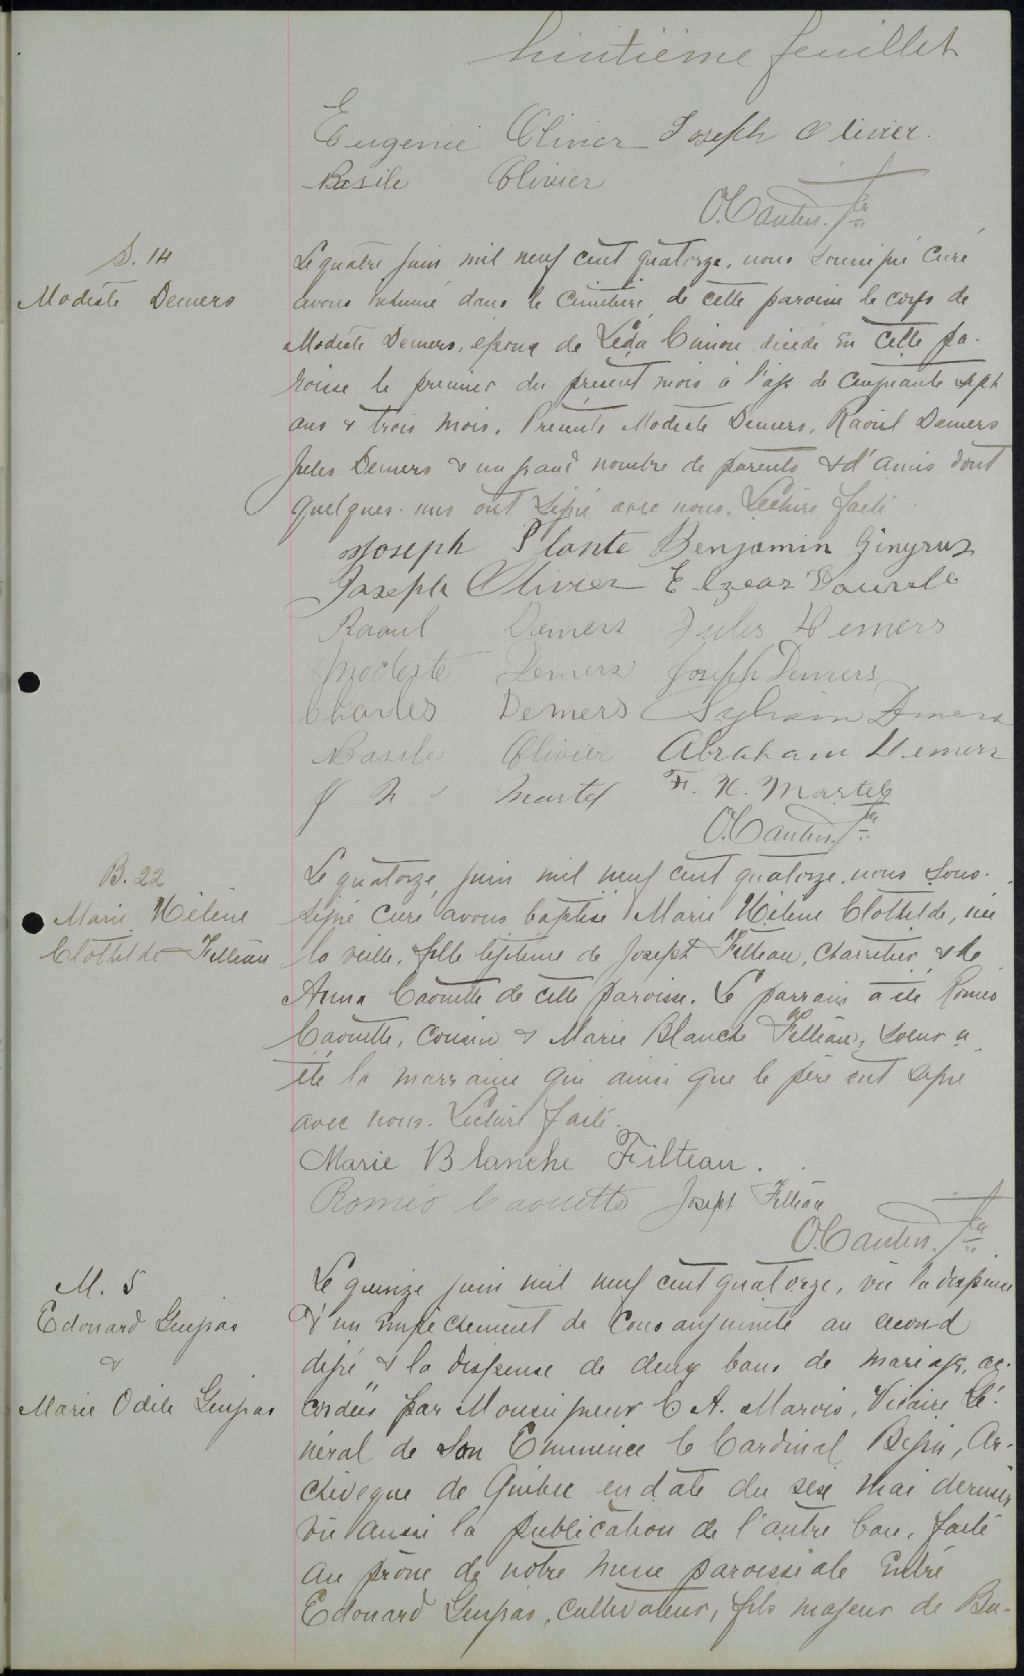 huitième feuillet
Eugenie Olivier Joseph Olivier.
Basile Olivier
O. Cantin. Ptre
S. 14
Modeste Demers
Le quatre juin mil neuf cent quatorze, nous soussigné curé
avons inhumé dans le cimetière de cette paroisse le corps de
Modeste Demers, époux de Léda Cimon décédé en cette pa-
roisse le premier du présent mois à l'age de cinquante sept
ans & trois mois. Présents Modeste Demers, Raoul Demers
Jules Demers & un grand nombre de parents & d'amis dont
quelques-uns ont signé avec nous. Lecture faite.
Joseph Plante Benjamin Gingras
Joseph Olivier Elzear
Raoul Demers Jules Demers
Modeste Demers Joseph Demers
Charles Demers Sylvain Demers
Basile Olivier Abraham Demers
J N Martel F. X. Martel
O. Cantin. Ptre
B. 22
Marie Hélène
Clothilde Filteau
Le quatorze, juin mil neuf cent quatorze, nous sous-
signé curé avons baptisé Marie Hélène Clothilde, née
la veille, fille légitime de Joseph Filteau, charretier & de
Anna Caouette de cette paroisse. Le parrain a été Roméo
Caouette, cousin & Marie Blanche Filteau, soeur a
été la marraine qui ainsi que le père ont signé
avec nous. Lecture faite.
Marie Blanche Filteau.
Roméo Caouette Joseph Filteau
O. Cantin. Ptre
M. 5
Edouard Guepas
&
Marie Odile Guepas
Le quinze juin mil neuf cent quatorze, vu la dispense
d'un empêchement de consanguinité au second
degré & la dispense de deux bans de mariage, ac-
cordées par Monseigneur C A. Marois, Vicaire Gé-
néral de Son Eminence le Cardinal Bégin, Ar-
chevêque de Québec en date du seize mai dernier
vu aussi la publication de l'autre ban, faite
au prône de notre messe paroissiale entre
Edouard Guepas, cultivateur, fils majeur de